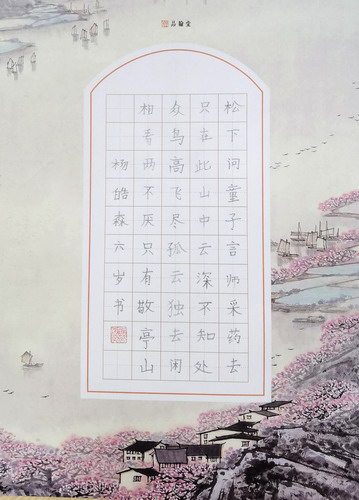 品翰堂
松下问童子言师采药去
只在此山中云深不知处
众鸟高飞尽孤云独去闲
相看两不厌只有敬亭山
杨皓森六岁书